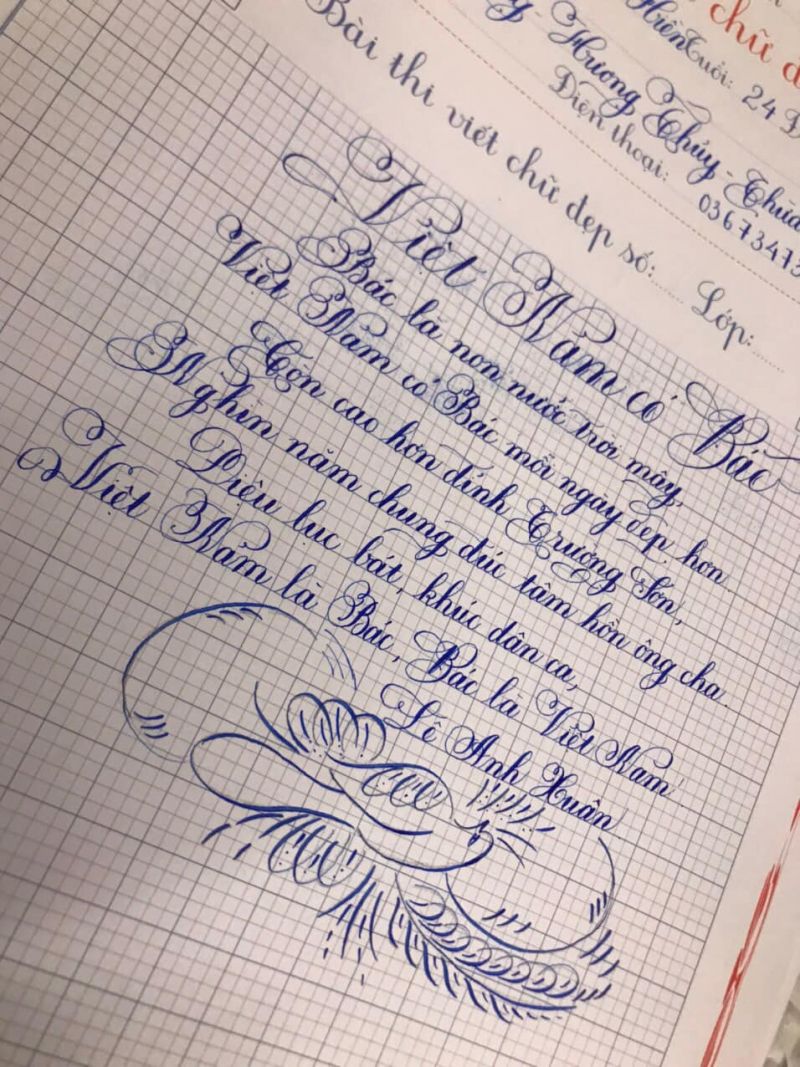 chữ đ
Hiền Tuổi: 24
Hương Thủy - Thừa
Điện thoại: 03673473
Bài thi viết chữ đẹp số: ...... Lớp: ......
Việt Nam có Bác
Bác là non nước trời mây,
Việt Nam có Bác mỗi ngày đẹp hơn
Còn cao hơn đỉnh Trường Sơn,
Nghìn năm chung đúc tâm hồn ông cha.
Điệu lục bát, khúc dân ca,
Việt Nam là Bác, Bác là Việt Nam!
Lê Anh Xuân